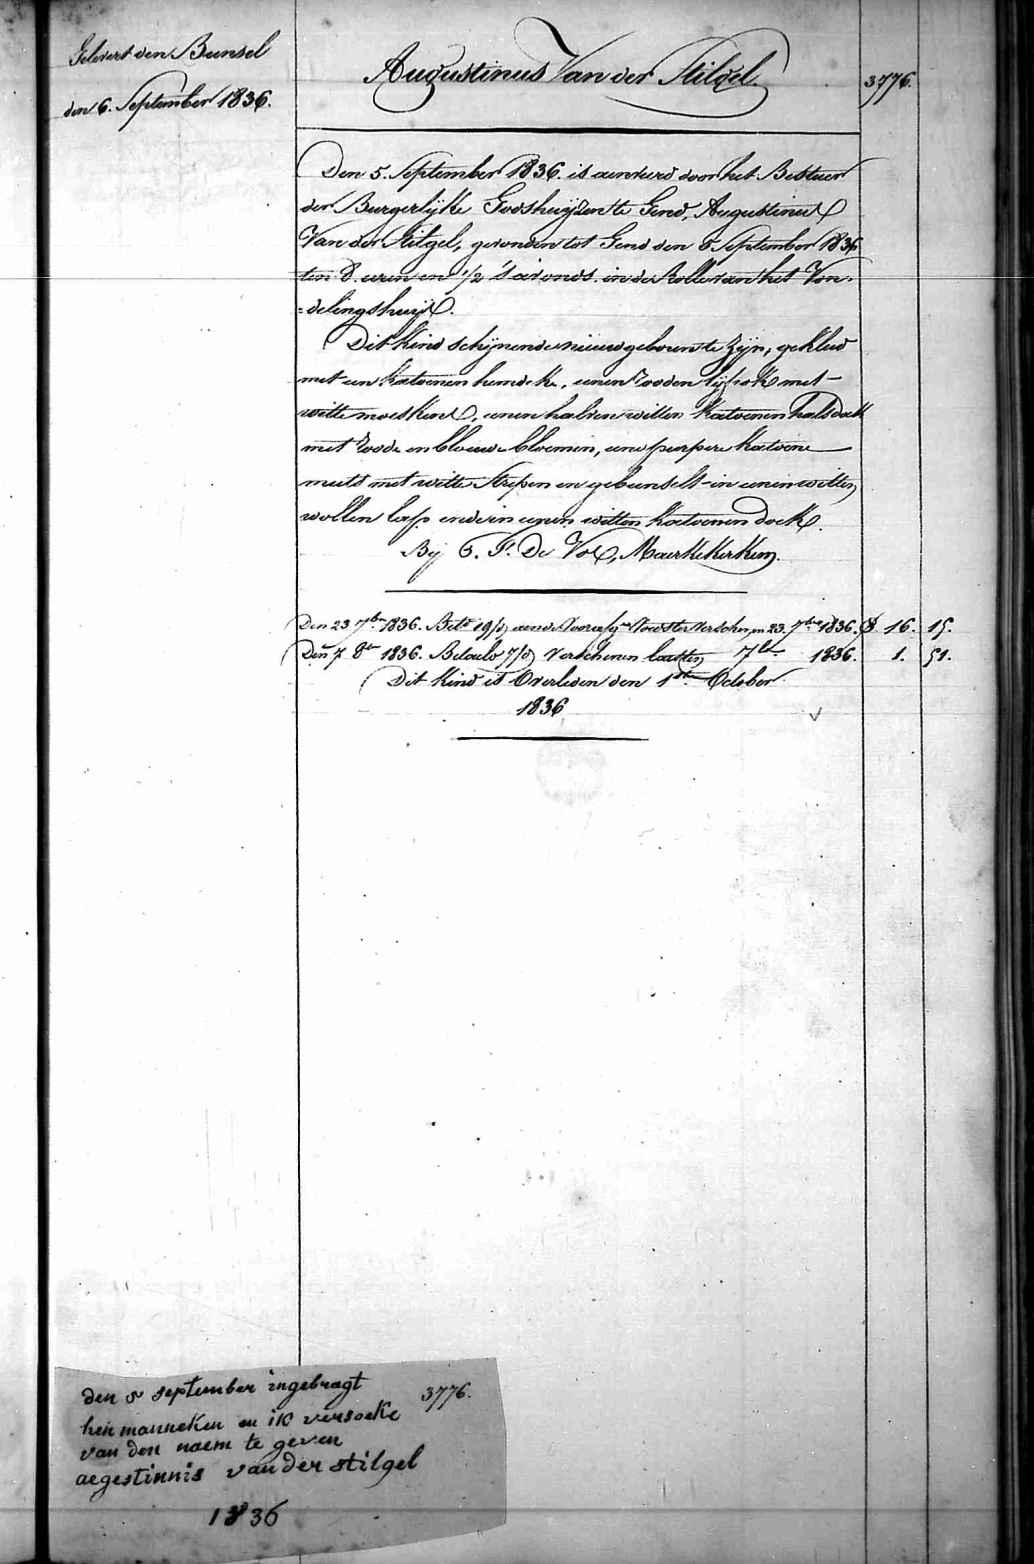 Gelevert den Bunsel
den 6. September 1836.
Augustinus Van der Stilgel.
3776.
Den 5. September 1836. is aenveerd door het Bestuer
der Burgerlijke Godshuijzen te Gend, Augustinus
Van der Stilgel, gevonden tot Gend den 5 September 1836
ten 8. uren en 1/2 's avonds. in de Rolle van het Von-
=delingshuijs.
Dit Kind schijnende nieuwgeboren te zijn, gekleed
met een katoenen hemdeke, eenen rooden lijfrok met
witte moeskens, eenen halven witten katoenen halsdoek
met roode en blouwe bloemen, eene purpere katoene
muts met witte strepen en gebunselt in eenen witten
wollen lap ende in eenen witten katoenen doek.
Bij De Vos, Maerkekerkem.
Den 23 7ber 1836. 23. 7bre 1836. 16. 15.
Den 7. 8er 1836. Betaeld Verschenen 7ber 1836. 1. 51.
Dit Kind is Overleden den 1ste October
1836
den 5 september ingebragt
3776.
hen manneken en ik versoeke
van den naem te geven
aegestinnis van der stilgel
1836